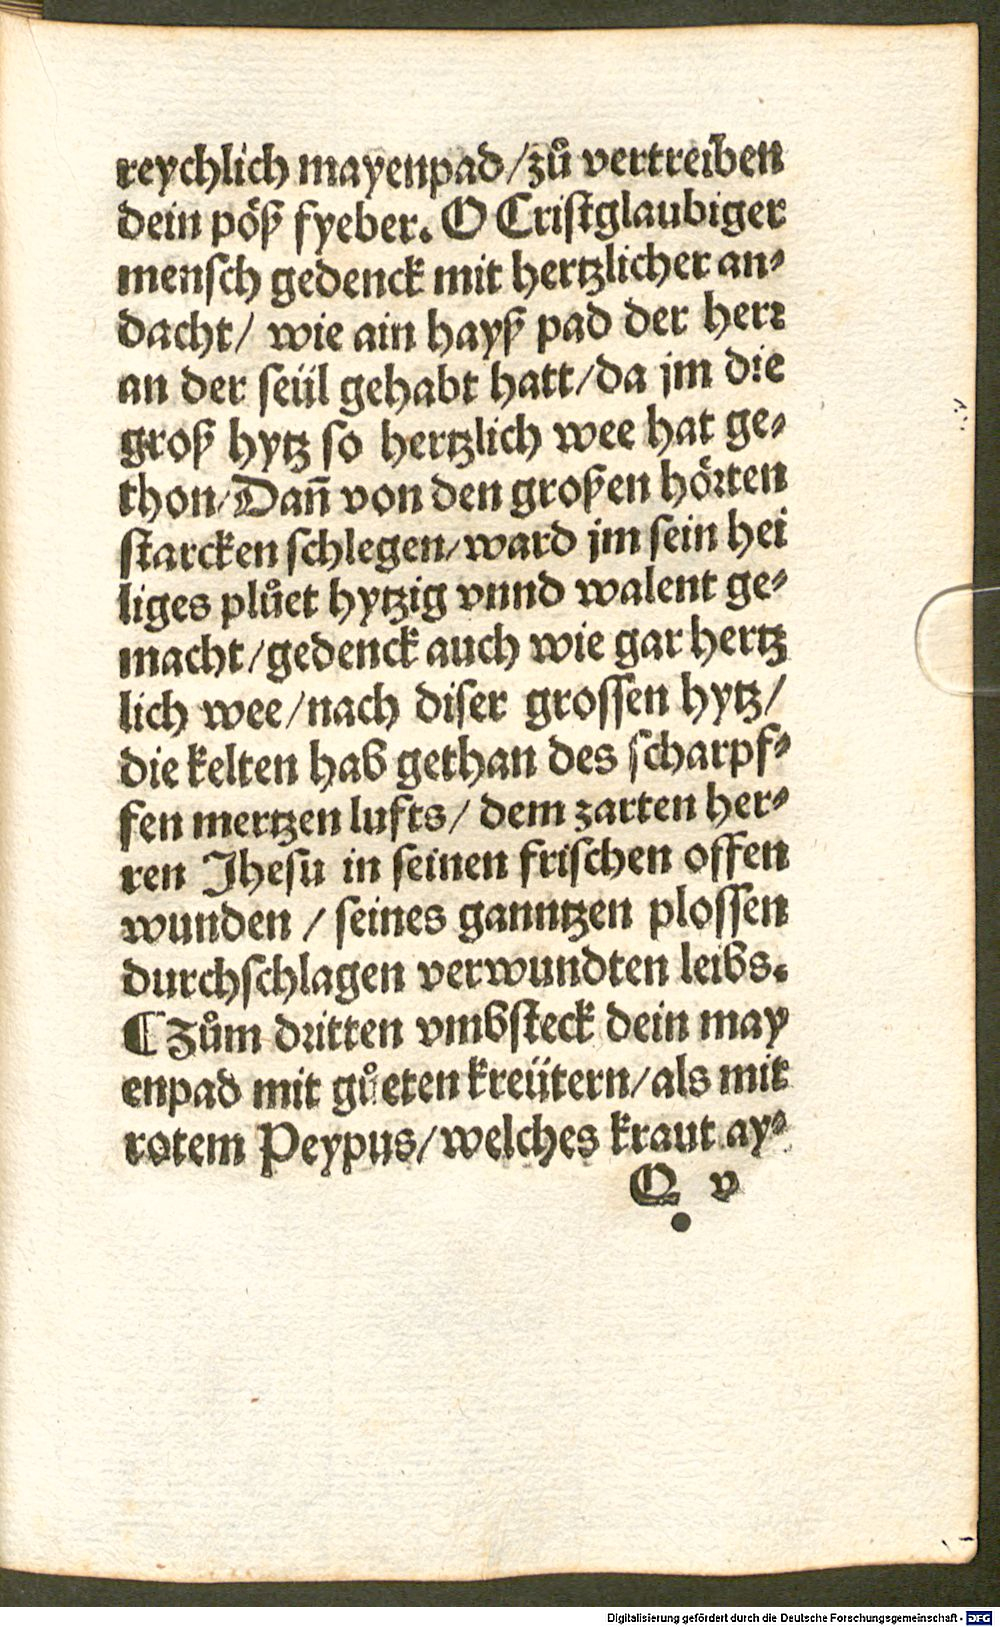 reychlich mayenpad/zů vertreiben
dein pöß fyeber. O Cristglaubiger
mensch gedenck mit hertzlicher an-
dacht/ wie ain hayß pad der herr
an der seül gehabt hatt/da jm die
groß hytz so hertzlich wee hat ge-
thon/Dañ von den großen hörten
starcken schlegen/ward jm sein hei
liges plůet hytzig vnnd walent ge-
macht/gedenck auch wie gar hertz
lich wee/nach diser grossen hytz/
die kelten hab gethan des scharpf-
fen mertzen lufts/ dem zarten her-
ren Jhesu in seinen frischen offen
wunden / seines ganntzen plossen
durchschlagen verwundten leibs.
¶ Zům dritten vmbsteck dein may
enpad mit gůeten kreütern/als mit
rotem Peypus/welches kraut ay-
Q v
Digitalisierung gefördert durch die Deutsche Forschungsgemeinschaft - DFG